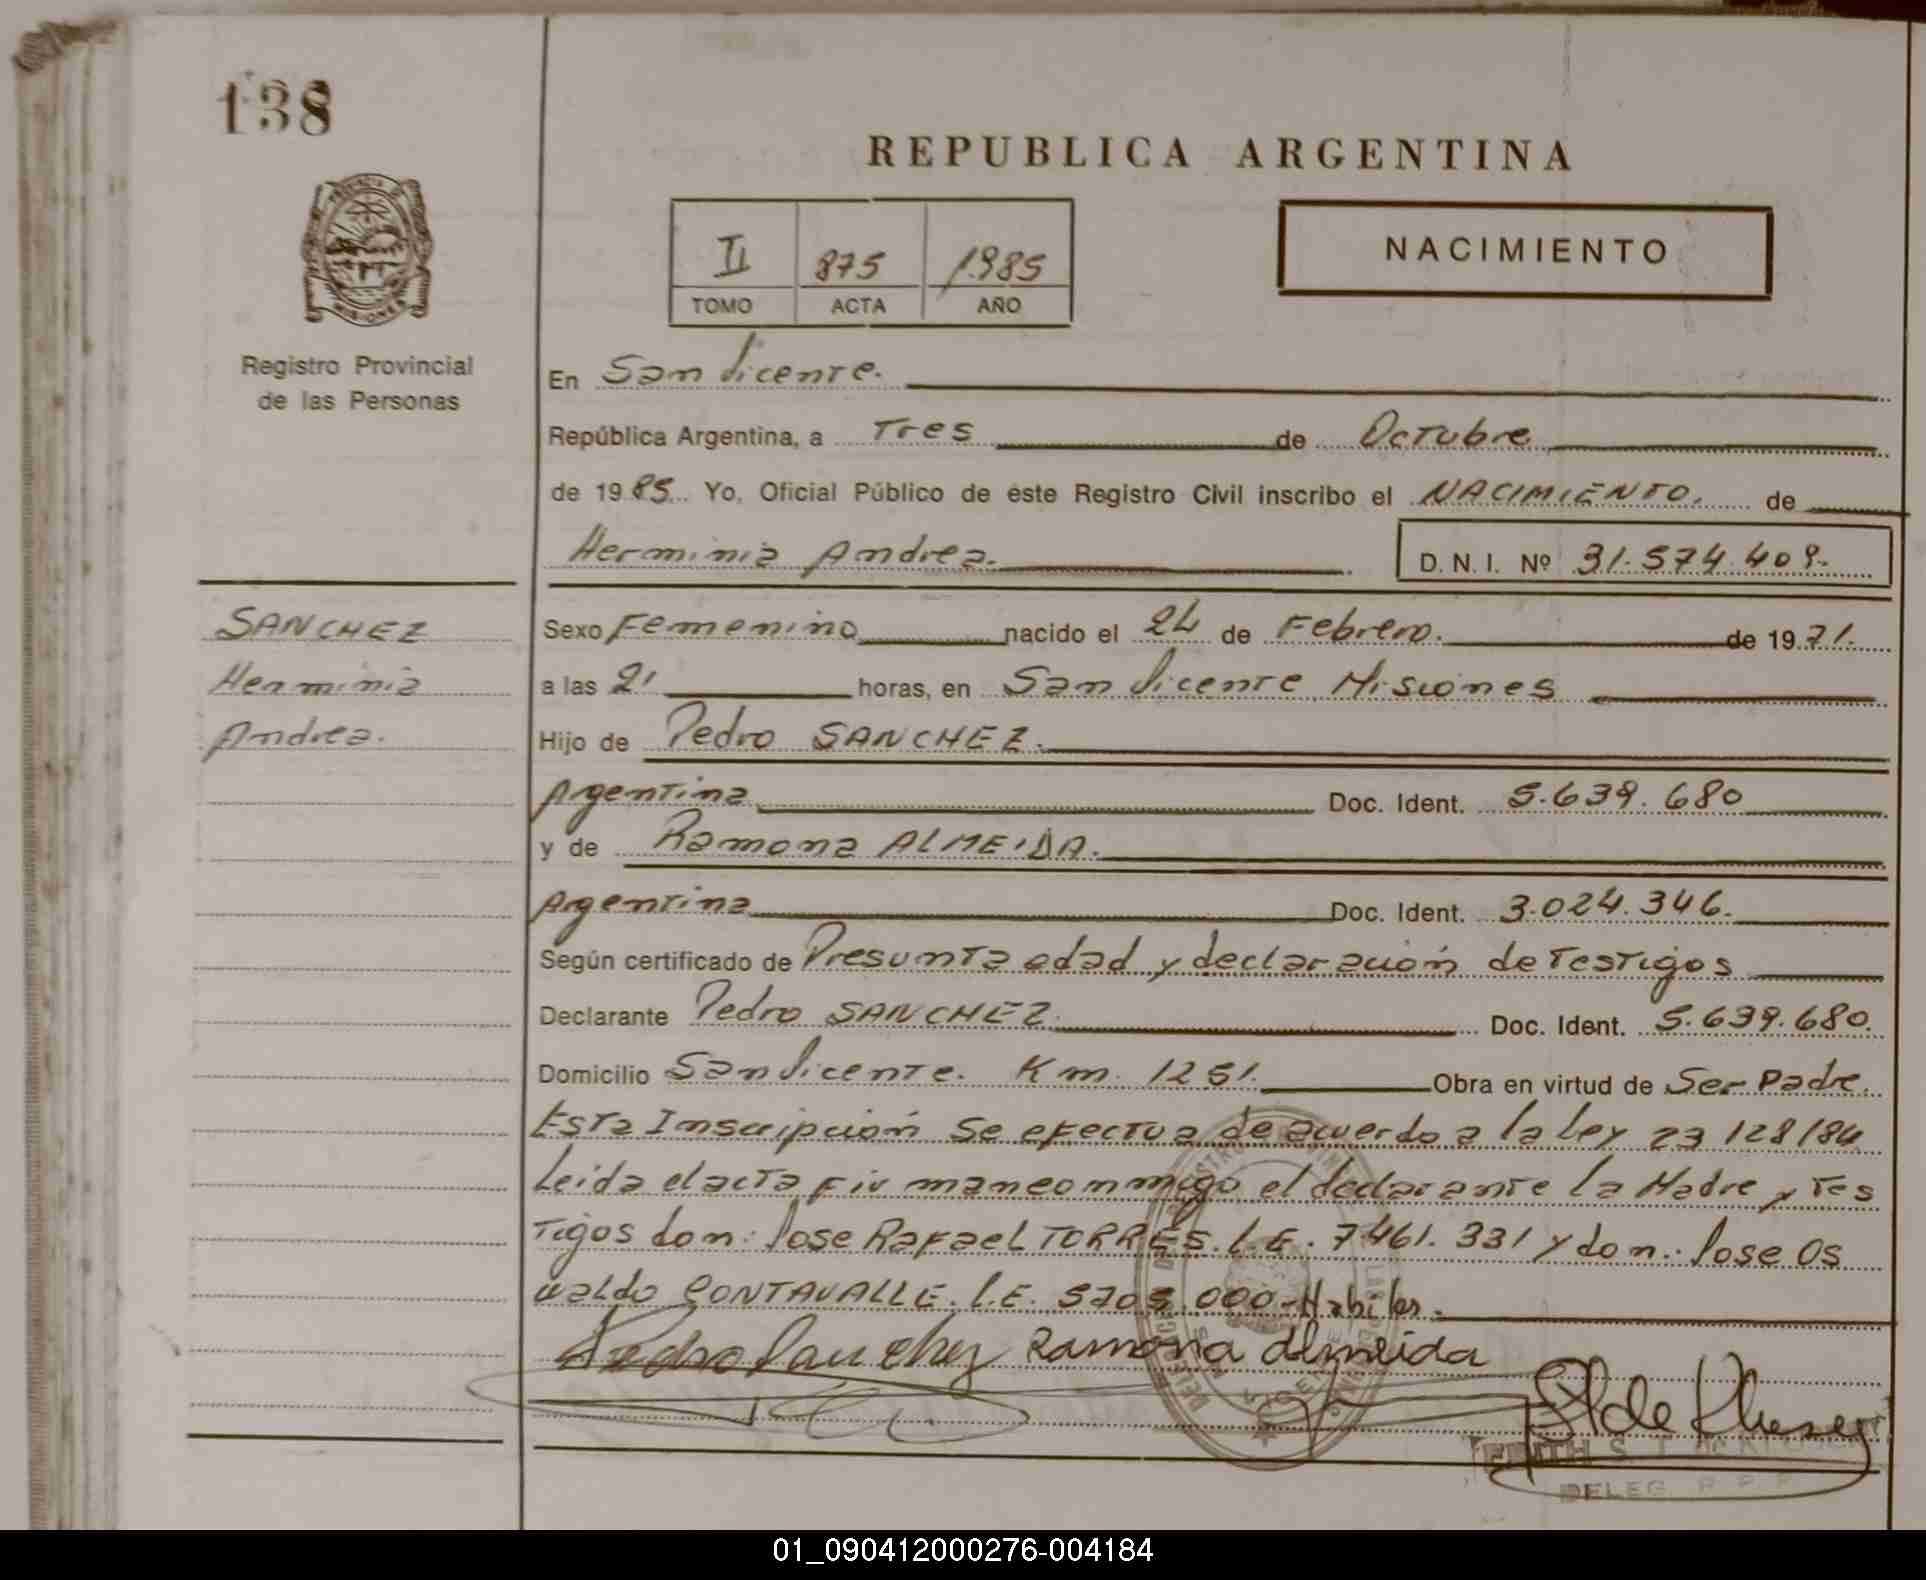 138
REPUBLICA ARGENTINA
II 875 1985
TOMO ACTA AÑO
NACIMIENTO
Registro Provincial
de las Personas
En San Vicente.
República Argentina, a Tres de Octubre
de 1985. Yo, Oficial Público de este Registro Civil inscribo el NACIMIENTO. de
Herminia Andrea.
D. N. I. Nº 31.574.409.
SANCHEZ
Herminia
Andrea.
Sexo Femenino nacido el 24 de Febrero. de 1971.
a las 21 horas, en San Vicente Misiones
Hijo de Pedro SANCHEZ.
Argentina Doc. Ident. 5.639.680
y de Ramona ALMEIDA.
Argentina Doc. Ident. 3.024.346.
Según certificado de Presunta edad y declaración de Testigos
Declarante Pedro SANCHEZ. Doc. Ident. 5.639.680.
Domicilio San Vicente. Km. 1251. Obra en virtud de Ser Padre.
Esta Inscripción se efectua de acuerdo a la Ley 23128/84
Leida el acta firman conmigo el declarante la Madre y Tes
Tigos don: Jose Rafael TORRES. L.E. 7461.331 y don: Jose Os
waldo L.E. 000-Habiles.
Pedro Sanchez Ramona Almeida
DELEG. R P P
01_090412000276-004184